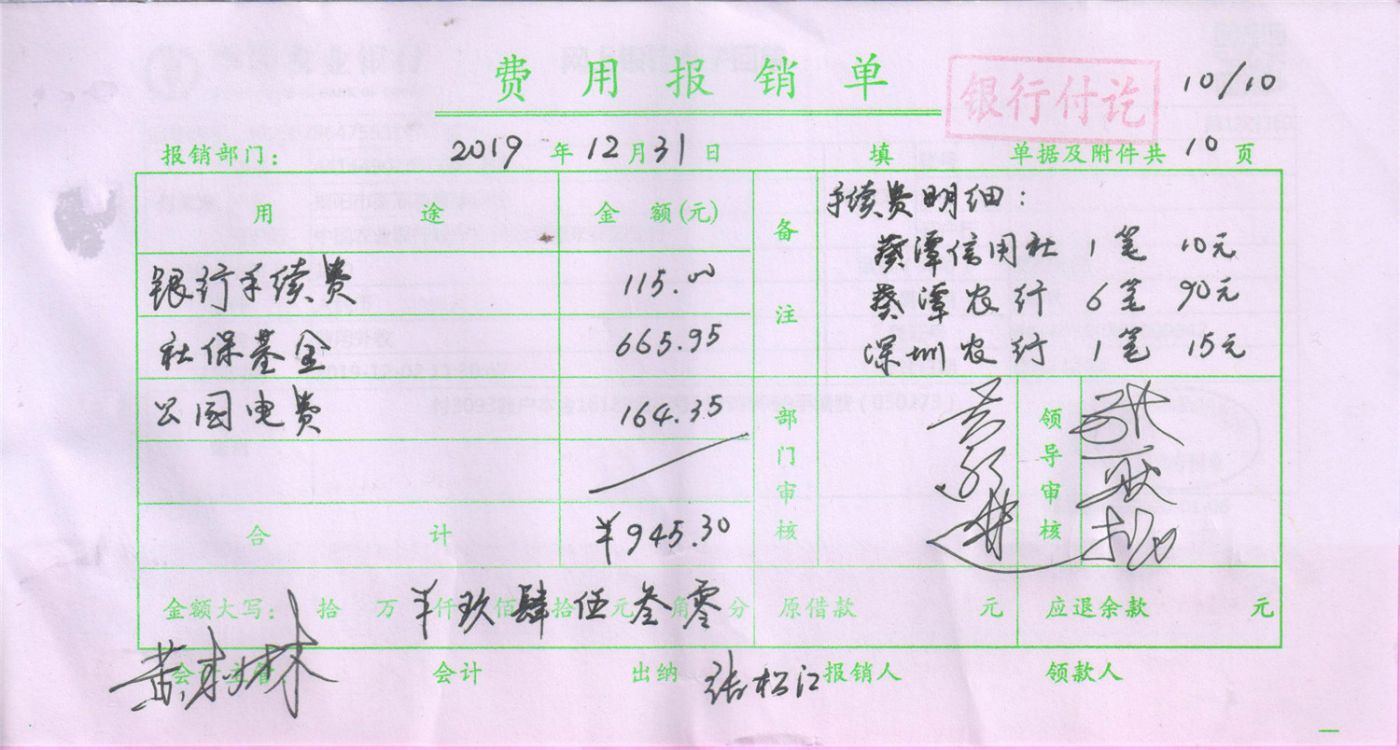 费用报销单
银行付讫
10/10
报销部门： 2019 年 12 月 31 日 填 单据及附件共 10 页
用途 金额(元) 备注 手续费明细：
葵潭信用社 1笔 10元
银行手续费 115.00
葵潭农行 6笔 90元
社保基金 665.95
深圳农行 1笔 15元
公园电费 164.35
部门审核 领导审核
合计 ¥945.30
金额大写： 拾 万 ¥ 仟 玖 佰 肆 拾 伍 元 叁 角 零 分 原借款 元 应退余款 元
会计主管 会计 出纳 张松江 报销人 领款人